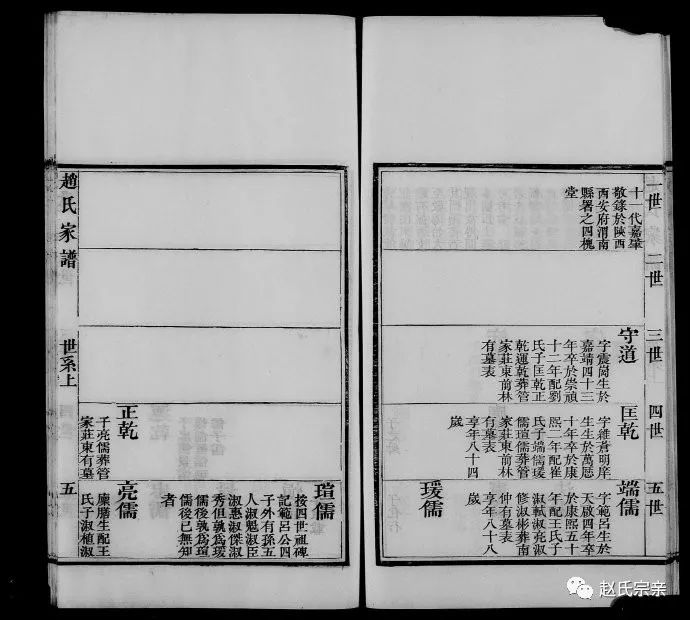 一世
十一代嘉肇
敬錄於陝西
西安府渭南
縣署之四槐
堂
二世
三世
守道
字震崗生於
嘉靖四十三
年卒於崇禎
十二年配劉
氏子匡乾正
乾運乾葬管
家莊東前林
有墓表
四世
匡乾
字維蒼明庠
生生於萬厯
十年卒於康
熙二年配崔
氏子端儒瑗
儒道儒葬管
家莊東前林
有墓表
享年八十四
歲
五世
端儒
字範呂生於
天啟四年卒
於康熙五十
年配王氏子
淑軾淑亮淑
修淑彬葬南
仲有墓表
享年八十八
歲
瑗儒
瑄儒
按四世祖碑
記範呂公四
子外有孫五
人淑魁淑臣
淑惠淑傑淑
秀但孰為瑗
儒後孰為瑄
儒後已無知
者
正乾
子亮儒葬管
家莊東有墓
亮儒
廩膳生配王
氏子淑植淑
趙氏家譜
世系上
五
赵氏宗亲